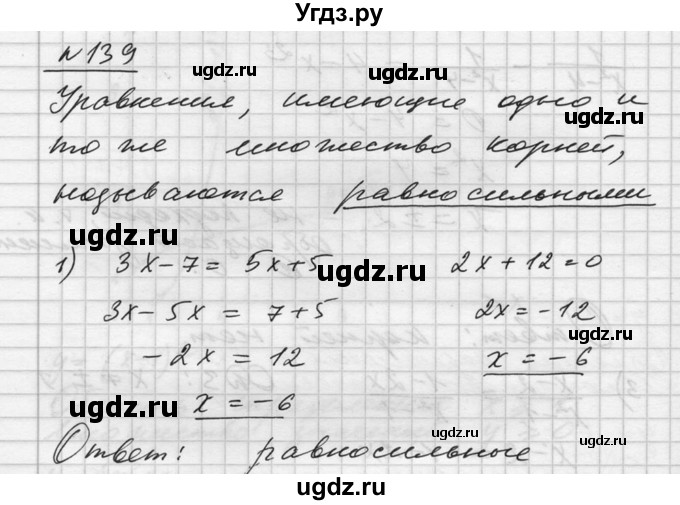 Угдз.ру
№139
ugdz.ru
Уравнения, имеющие одно и
ugdz.ru
то же множество корней,
ugdz.ru
называются равносильными
ugdz.ru
1) 3x-7= 5x+5 2x+12=0
ugdz.ru
3x-5x = 7+5 2x=-12
ugdz.ru
-2x = 12 x = -6
ugdz.ru
x = -6
ugdz.ru
Ответ: равносильные
ugdz.ru
ugdz.ru